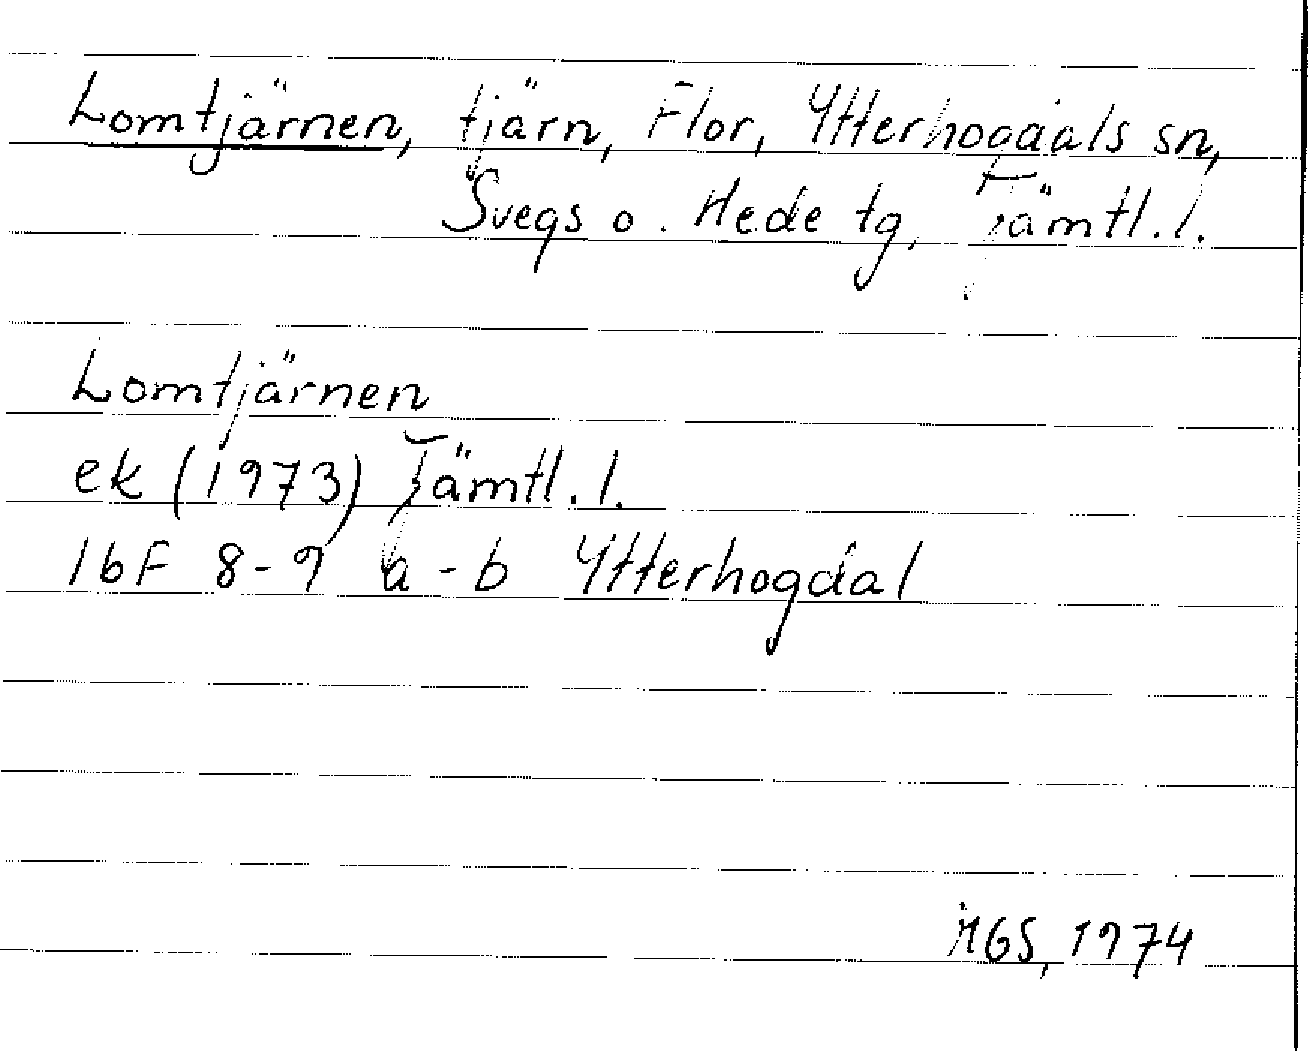 Lomtjärnen, tjärn, Flor, Ytterhogdals sn,
Svegs o. Hede tg, Jämtl. l.
Lomtjärnen
ek (1973) Jämtl. l.
16F 8-9 a-b Ytterhogdal
MGS, 1974